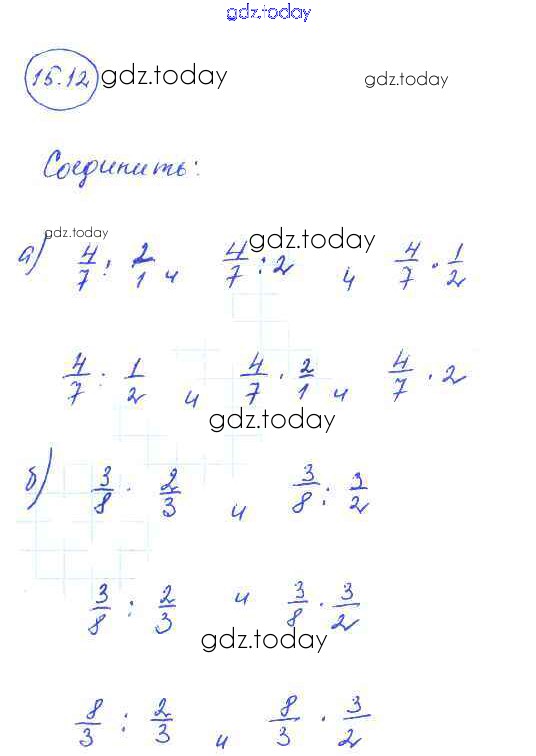 gdz.today
15.12 gdz.today gdz.today
Соединить:
gdz.today
а) 4/7 : 2/1 и 4/7 : 2 и 4/7 · 1/2
gdz.today
4/7 : 1/2 и 4/7 · 2/1 и 4/7 · 2
gdz.today
б) 3/8 · 2/3 и 3/8 : 3/2
3/8 : 2/3 и 3/8 · 3/2
gdz.today
8/3 : 2/3 и 8/3 · 3/2